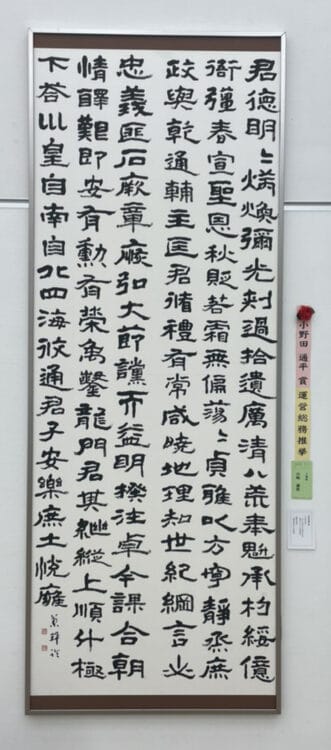 君德明〻炳煥彌光刾過拾遺厲清八荒奉魁承杓綏億
衙彊春宣聖恩秋貶若霜無偏蕩〻貞雅以方寧靜烝庶
政與乾通輔主匡君脩禮有常咸曉地理知世紀綱言必
忠義匪石厥章恢弘大節讜而益明揆往卓今謀合朝
情醳艱即安有勳有榮禹鑿龍門君其繼縱上順斗極
下荅巛皇自南自北四海攸通君子安樂庶士悅雍
小野田 通平 賞 運営総務推挙